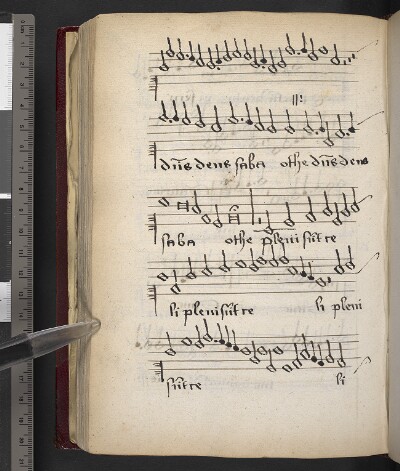 dn̄s deus saba othe dn̄s deus
saba othe pleni sūt ce
li pleni sūt ce li pleni
sūt ce li